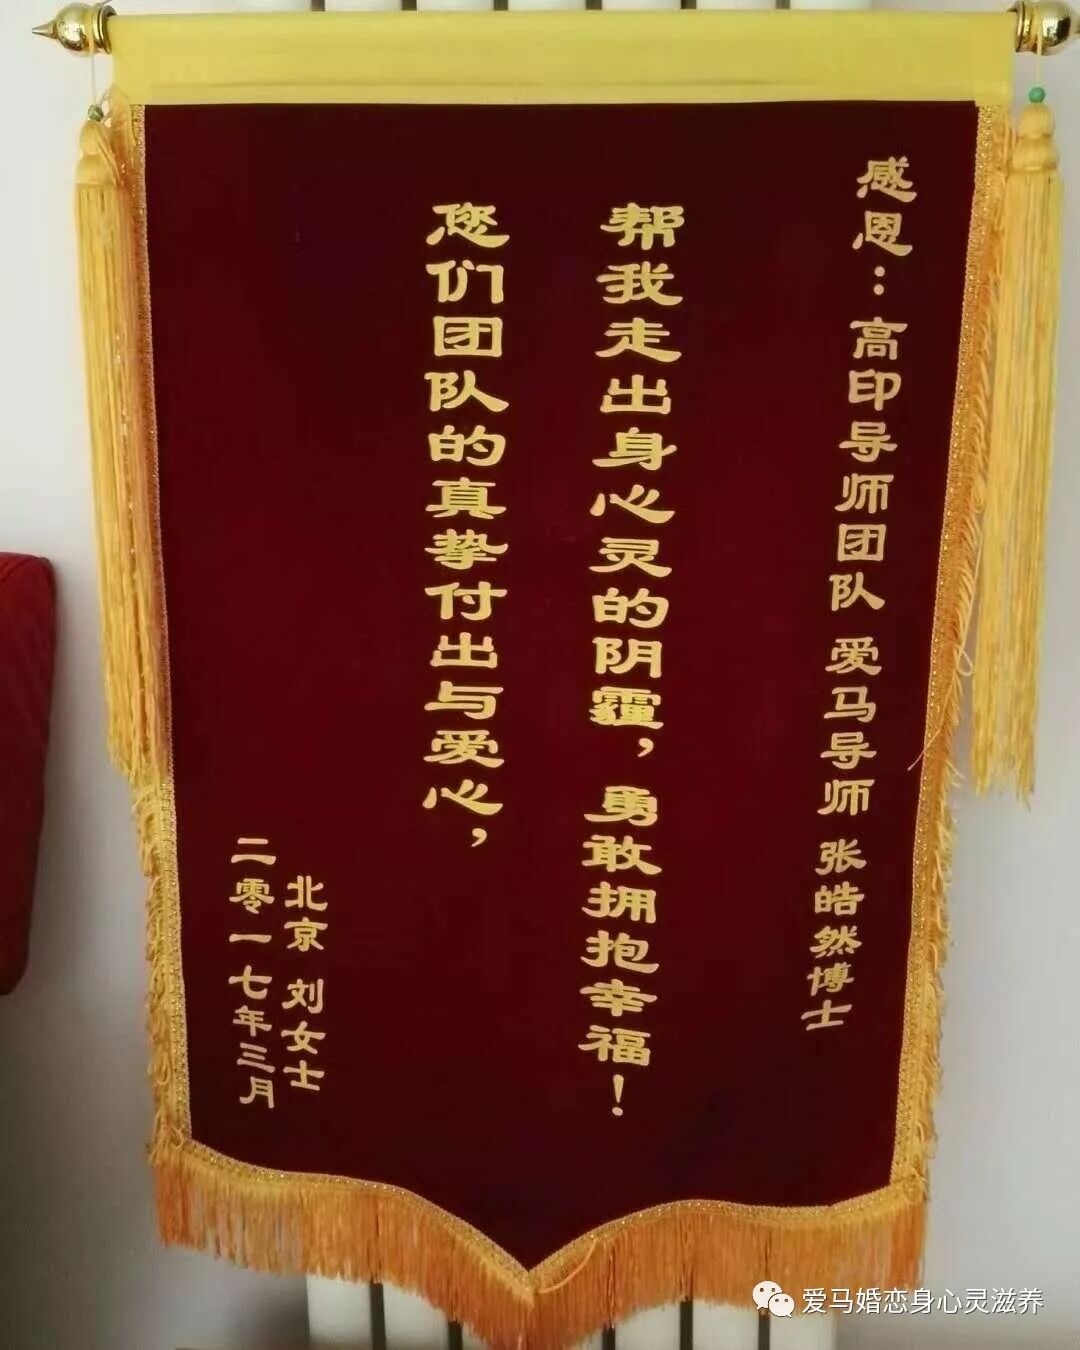 感恩：高印导师团队 爱马导师 张皓然博士
帮我走出身心灵的阴霾，勇敢拥抱幸福！
您们团队的真挚付出与爱心，
北京 刘女士
二零一七年三月
爱马婚恋身心灵滋养